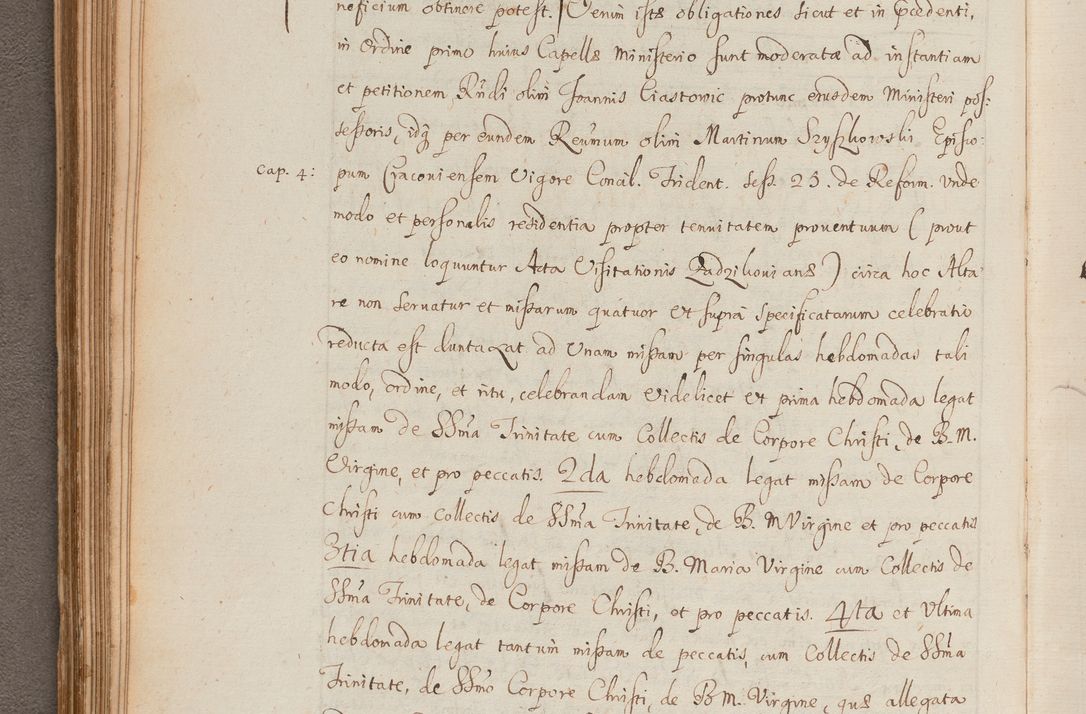 neficium obtinere potest. Verum istæ obligationes sicut et in p̄cedenti,
in ordine primo huius Capellæ Ministerio sunt moderatæ ad instantiam
et petitionem Rñdi olim Joannis Ciastowic protunc eiusdem Ministerii pos-
sessoris, idq́ per eundem Reuñum olim Martinum Szyszkowski Episco-
cap. 4:
pum Cracouiensem Vigore Concil. Trident. sess. 25. de Reform. Vnde
modo et personalis residentia propter tenuitatem prouentuum ( prout
eo nomine loquuntur Acta Visitationis Radziliouianæ ) circa hoc Alta-
re non seruatur et missarum quatuor et supra specificatarum celebratio
reducta est duntaxat ad Vnam missam per singulas hebdomadas tali
modo, ordine, et ritu, celebrandam Videlicet Vt prima hebdomada legat
missam de SSm̃a Trinitate cum Collectis de Corpore Christi, de B. M.
Virgine, et pro peccatis. 2da hebdomada legat missam de Corpore
Christi cum Collectis de SSm̃a Trinitate, de B. M Virgine et pro peccatis
3tia hebdomada legat missam de B. Maria Virgine cum Collectis de
SSm̃a Trinitate, de Corpore Christi, et pro peccatis. 4ta et Vltima
hebdomada legat tantum missam de peccatis, cum Collectis de SSm̃a
Trinitate, de SSm̃o Corpore Christi, de B M. Virgine, quæ allegata